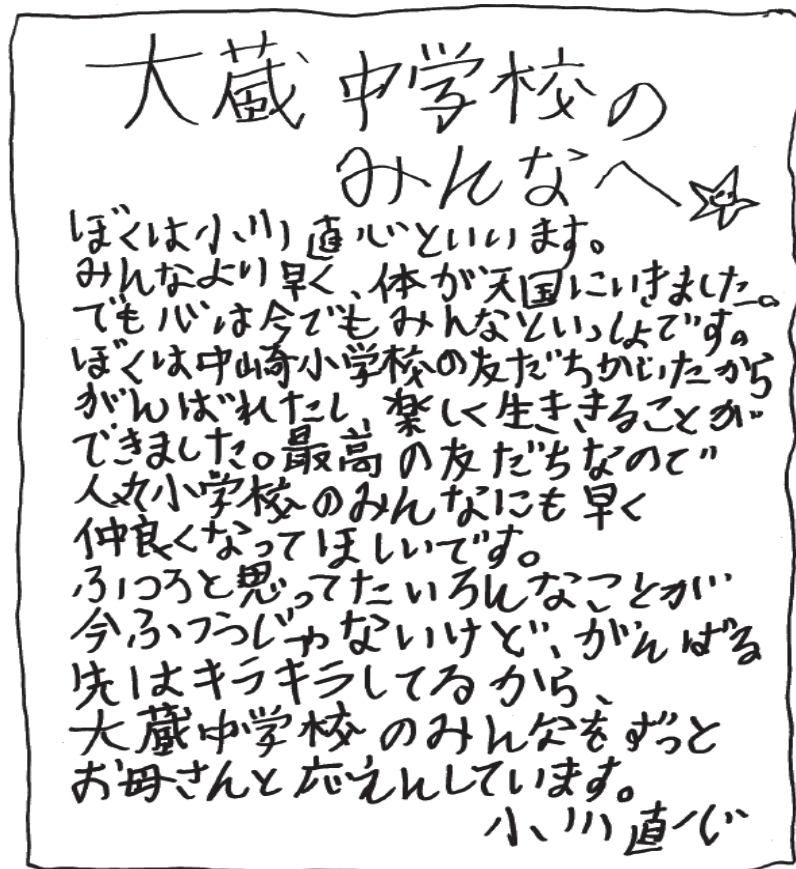 大蔵中学校の
みんなへ
ぼくは小川直心といいます。
みんなより早く、体が天国にいきました。
でも心は今でもみんなといっしょです。
ぼくは中崎小学校の友だちがいたから
がんばれたし、楽しく生ききることが
できました。最高の友だちなので
人丸小学校のみんなにも早く
仲良くなってほしいです。
ふつうと思ってたいろんなことが
今ふつうじゃないけど、がんばる
先はキラキラしてるから、
大蔵中学校のみんなをずっと
お母さんと応えんしています。
小川直心